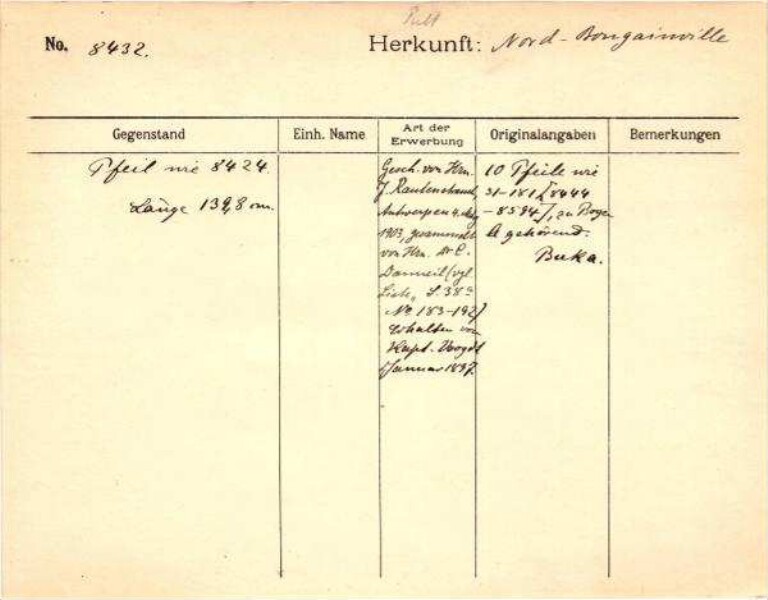 No. 8432.
Herkunft: Nord-Bougainville
Gegenstand
Einh. Name
Art der Erwerbung
Originalangaben
Bemerkungen
Pfeil wie 8424.
Länge 139,8 cm.
Gesch. von Hrn.
J. Rautenstrauch,
Antwerpen
1903, gesammelt
von Hrn. Dr C.
Danneil (vgl.
Liste, S. 38a
No 183-192)
Erhalten von
Kapt. Voogdt
Januar 1897.
10 Pfeile wie
31-181 [8444
-8594], zu Bogen
A gehörend.
Buka.